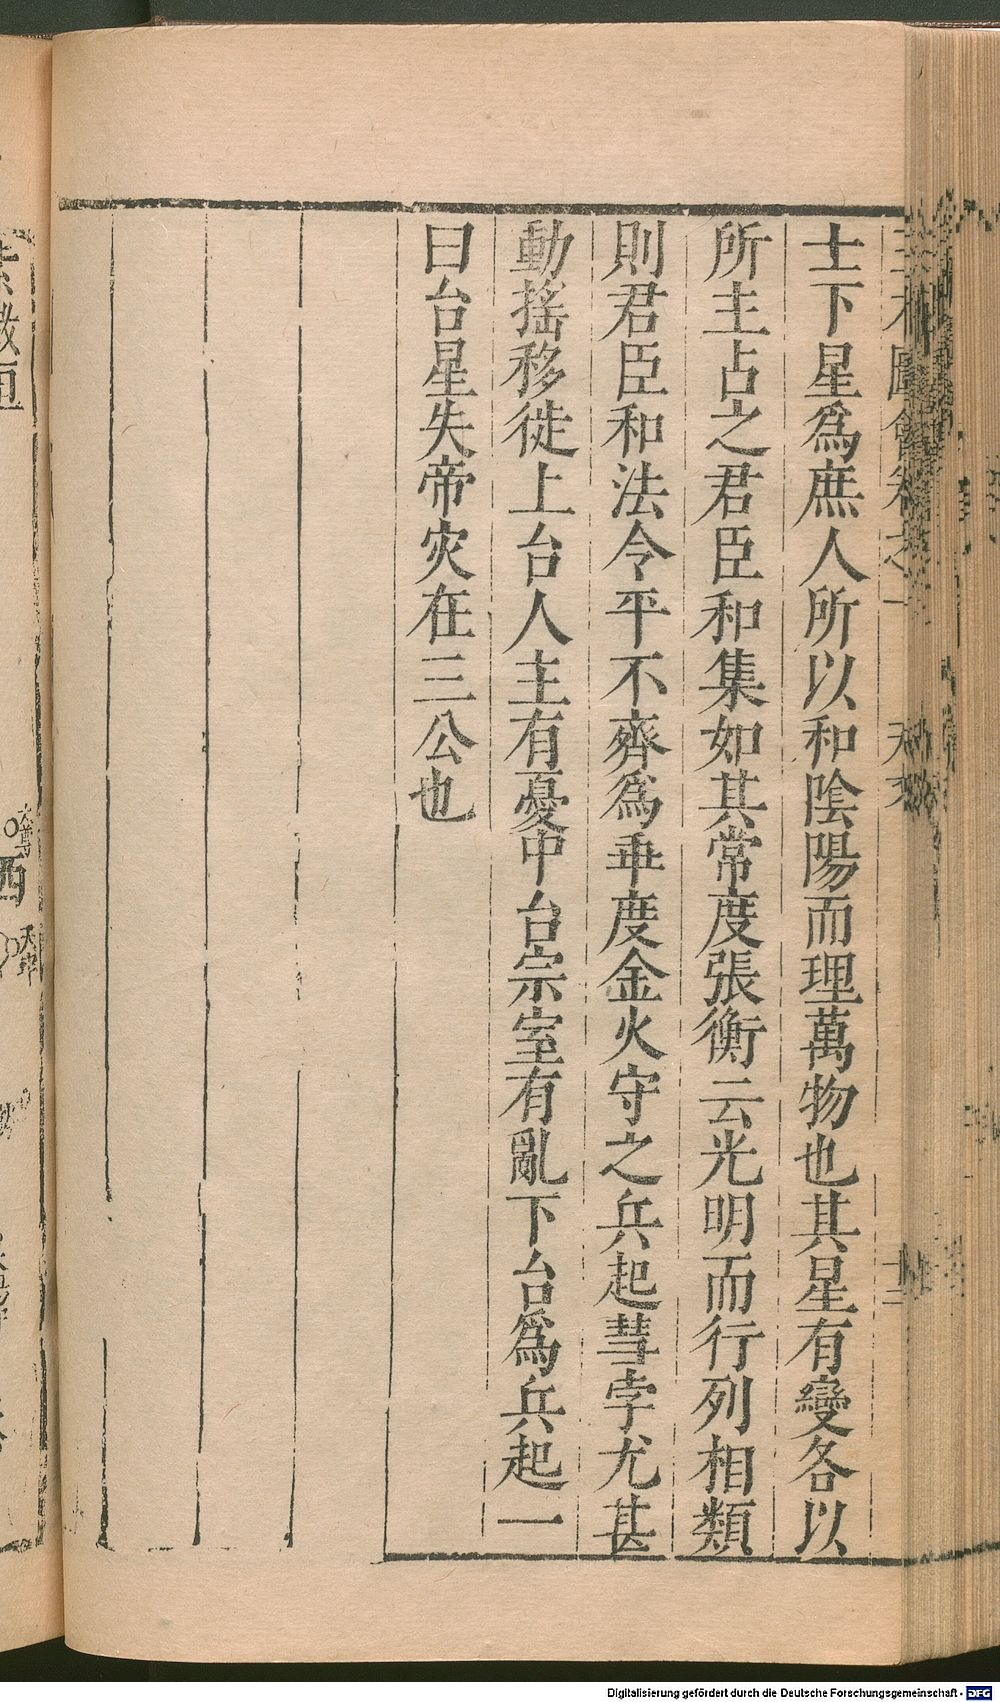 士下星爲庶人所以和陰陽而理萬物也其星有變各以
所主占之君臣和集如其常度張衡云光明而行列相類
則君臣和法令平不齊爲乖度金火守之兵起彗孛尤甚
動搖移徙上台人主有憂中台宗室有亂下台爲兵起一
曰台星失帝灾在三公也
紫微垣
Digitalisierung gefördert durch die Deutsche Forschungsgemeinschaft - DFG